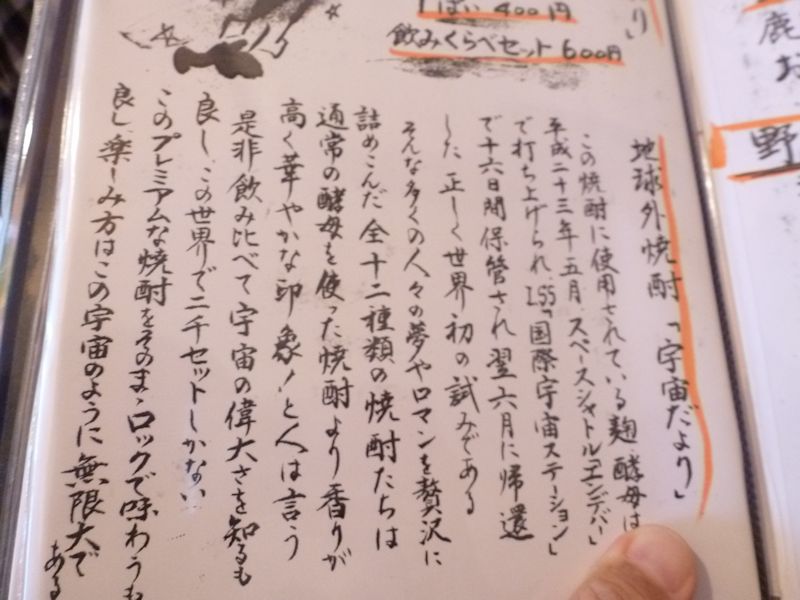 1ぱい 400円
飲みくらべセット 600円
り」
地球外焼酎「宇宙だより」
この焼酎に使用されている麹、酵母は
平成二十三年五月、スペースシャトル「エンデバー」
で打ち上げられ、ISS「国際宇宙ステーション」
で十六日間保管され翌六月に帰還
した 正しく世界初の試みである
そんな多くの人々の夢やロマンを贅沢に
詰めこんだ 全十二種類の焼酎たちは
通常の酵母を使った焼酎より香りが
高く華やかな印象!と人は言う
是非飲み比べて宇宙の偉大さを知るも
良し、この世界で二千セットしかない
このプレミアムな焼酎をそのまゝロックで味わうも
良し、楽しみ方はこの宇宙のように無限大で
ある
鹿
お
野